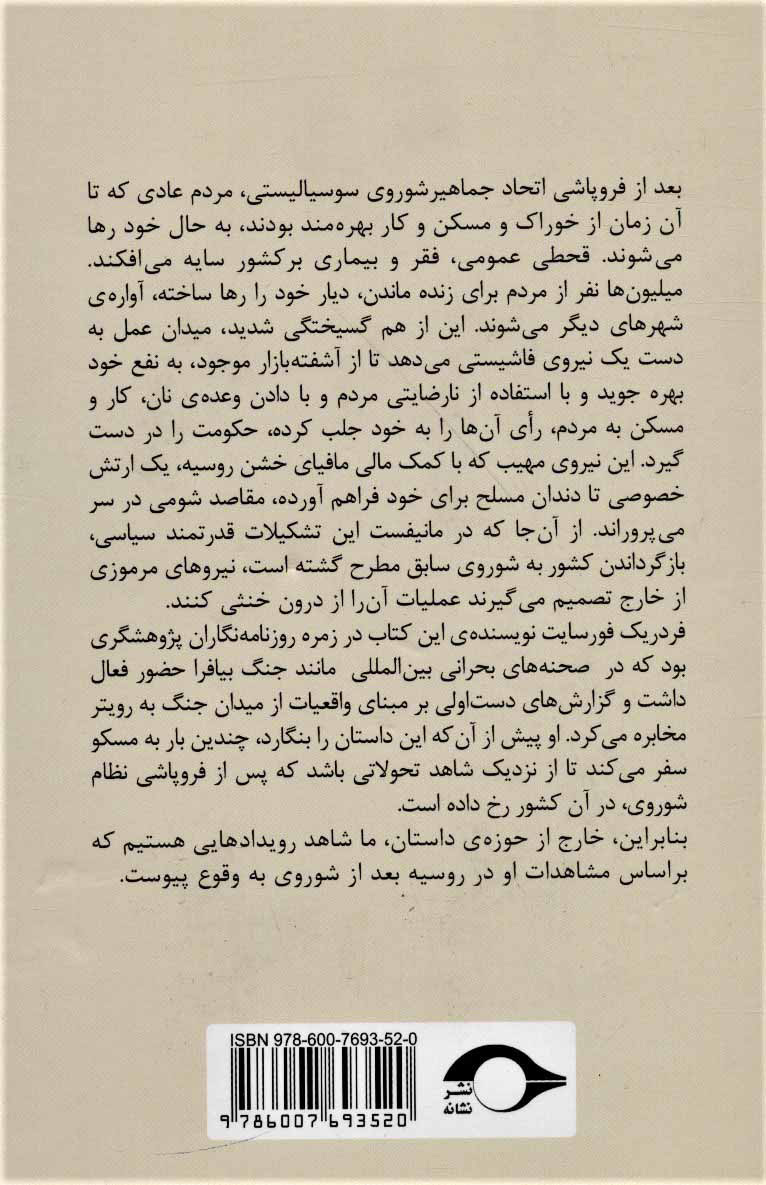 بعد از فروپاشی اتحاد جماهیرشوروی سوسیالیستی، مردم عادی که تا
آن زمان از خوراک و مسکن و کار بهره‌مند بودند، به حال خود رها
می‌شوند. قحطی عمومی، فقر و بیماری برکشور سایه می‌افکند.
میلیون‌ها نفر از مردم برای زنده ماندن، دیار خود را رها ساخته، آواره‌ی
شهرهای دیگر می‌شوند. این از هم گسیختگی شدید، میدان عمل به
دست یک نیروی فاشیستی می‌دهد تا از آشفته‌بازار موجود، به نفع خود
بهره جوید و با استفاده از نارضایتی مردم و با دادن وعده‌ی نان، کار و
مسکن به مردم، رأی آن‌ها را به خود جلب کرده، حکومت را در دست
گیرد. این نیروی مهیب که با کمک مالی مافیای خشن روسیه، یک ارتش
خصوصی تا دندان مسلح برای خود فراهم آورده، مقاصد شومی در سر
می‌پروراند. از آن‌جا که در مانیفست این تشکیلات قدرتمند سیاسی،
بازگرداندن کشور به شوروی سابق مطرح گشته است، نیروهای مرموزی
از خارج تصمیم می‌گیرند عملیات آن‌را از درون خنثی کنند.
فردریک فورسایت نویسنده‌ی این کتاب در زمره روزنامه‌نگاران پژوهشگری
بود که در صحنه‌های بحرانی بین‌المللی مانند جنگ بیافرا حضور فعال
داشت و گزارش‌های دست‌اولی بر مبنای واقعیات از میدان جنگ به رویتر
مخابره می‌کرد. او پیش از آن‌که این داستان را بنگارد، چندین بار به مسکو
سفر می‌کند تا از نزدیک شاهد تحولاتی باشد که پس از فروپاشی نظام
شوروی، در آن کشور رخ داده است.
بنابراین، خارج از حوزه‌ی داستان، ما شاهد رویدادهایی هستیم که
براساس مشاهدات او در روسیه بعد از شوروی به وقوع پیوست.
ISBN 978-600-7693-52-0
نشر
نشانه
9 786007 693520